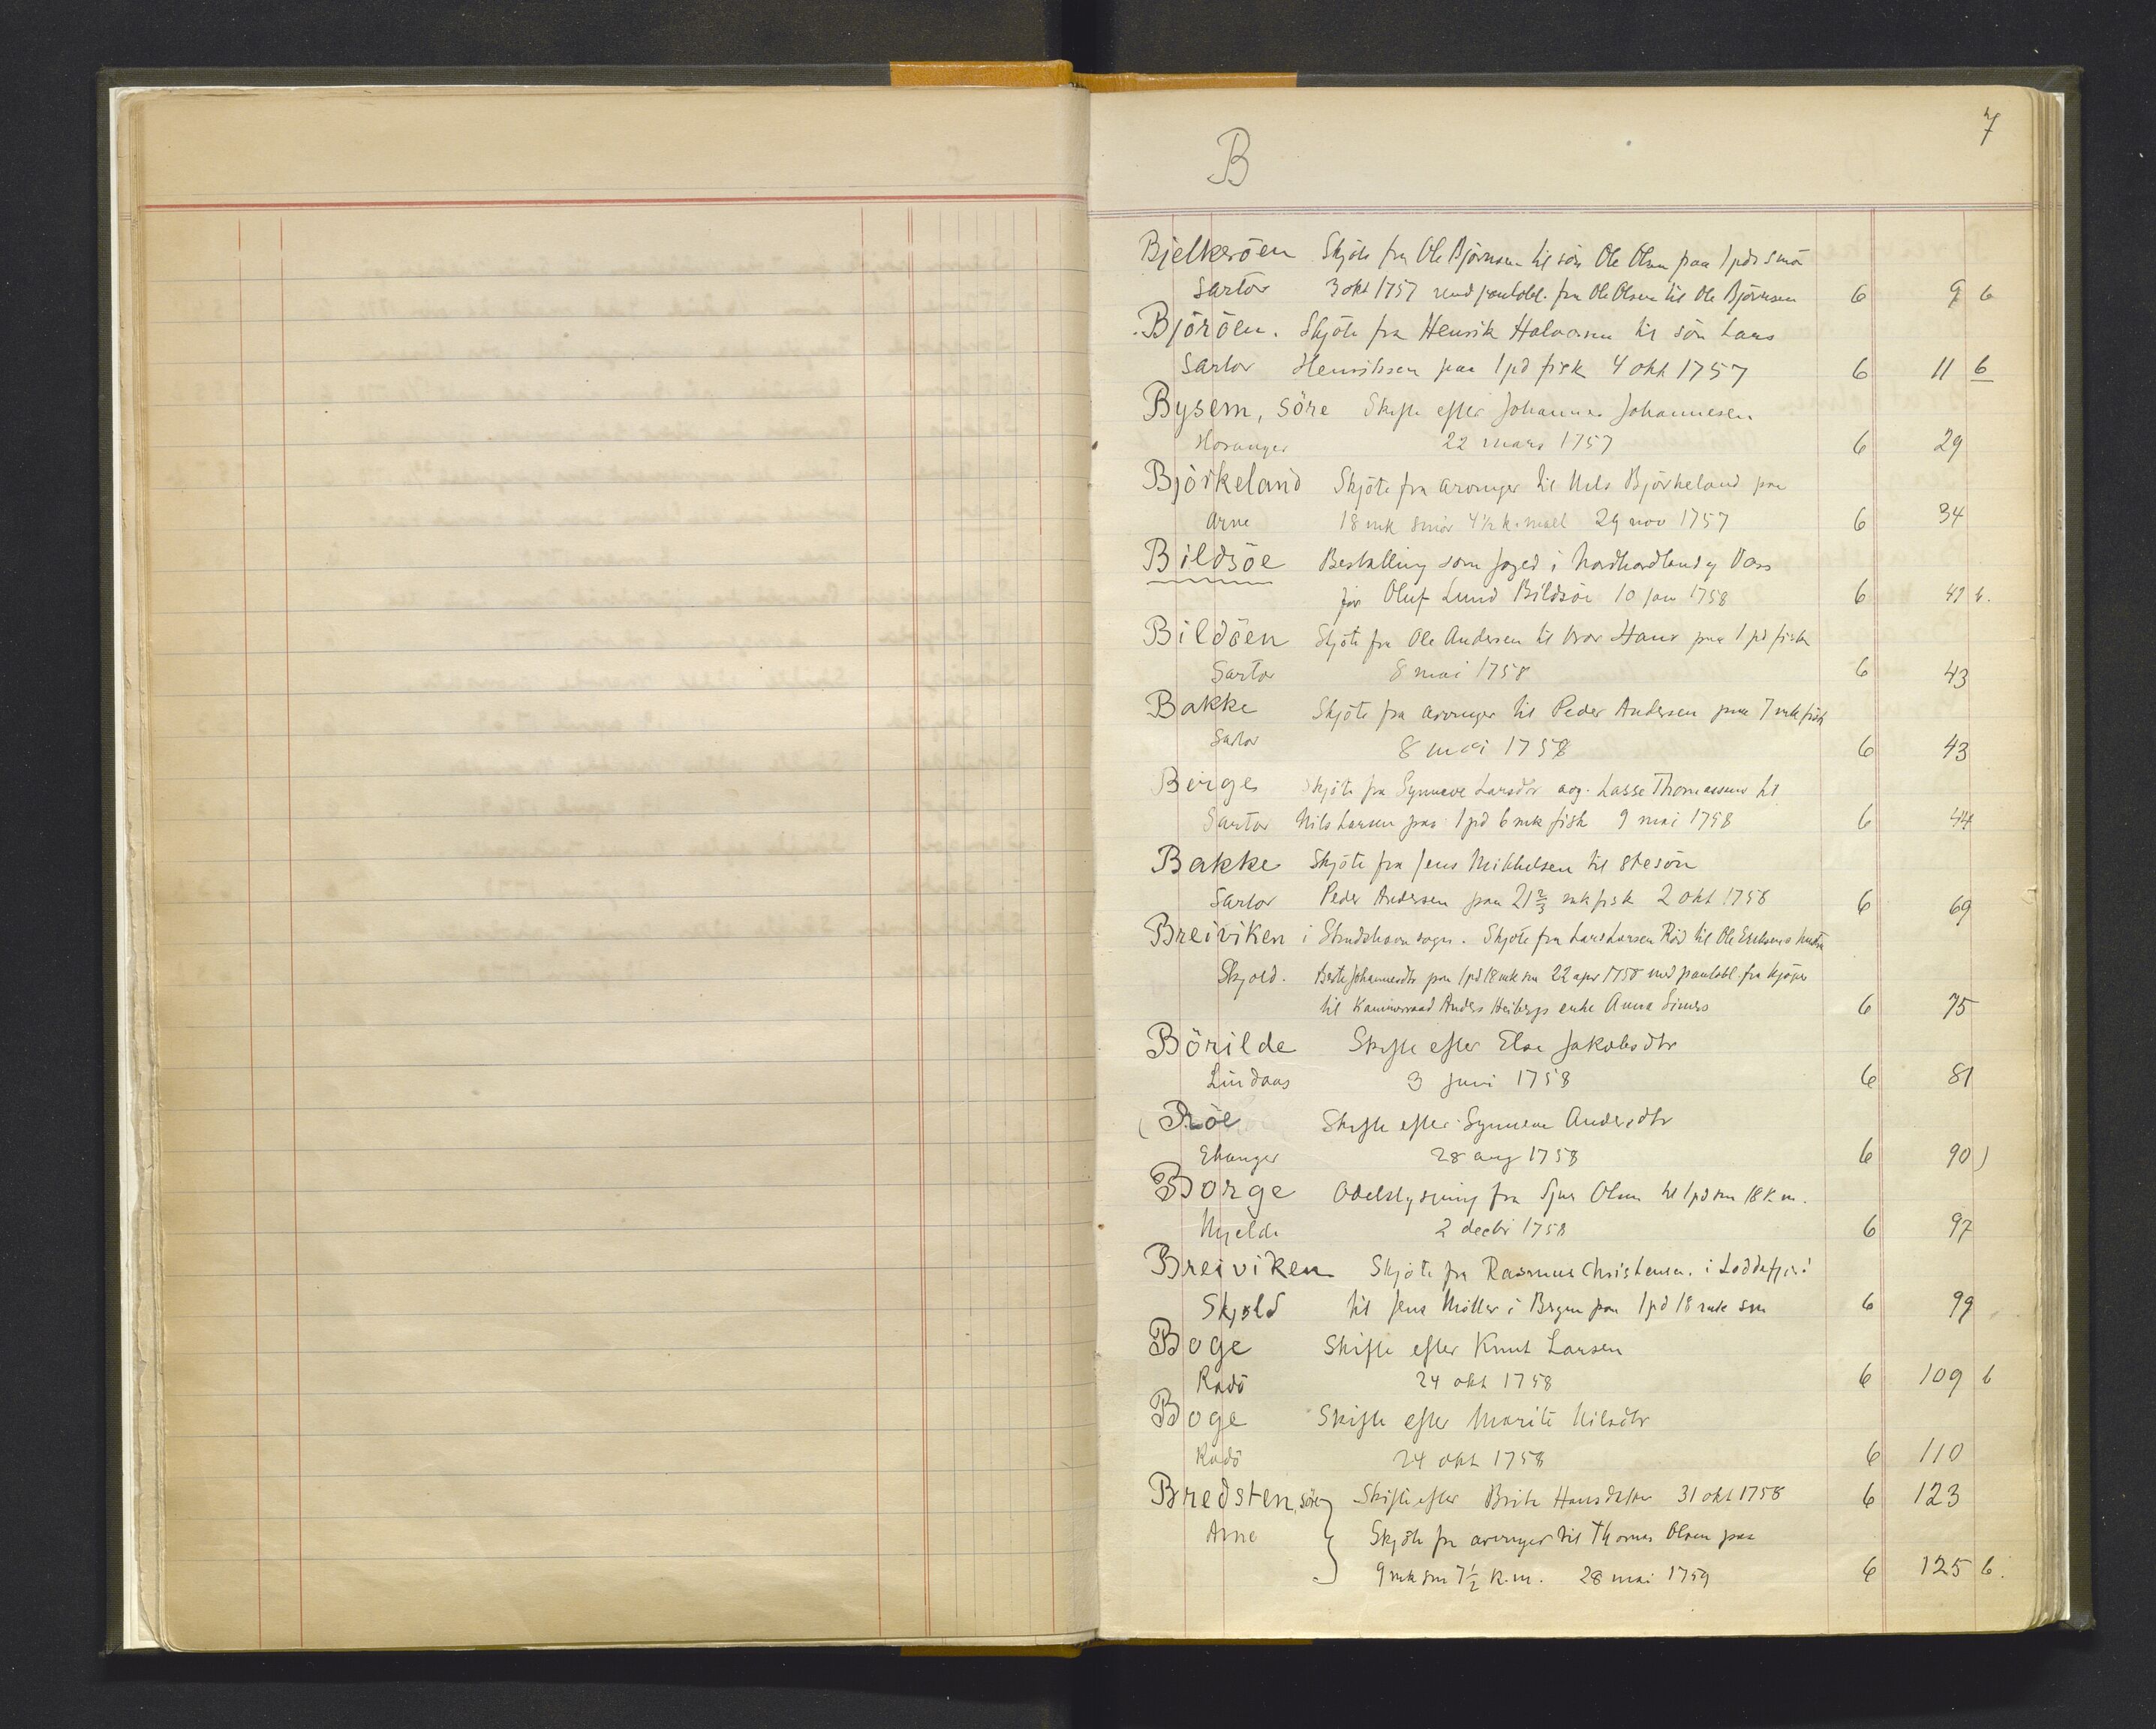 7
B
Bjelkeröen Skjöte fra Ole Björnsen til sön Ole Olsen paa 1 pd smör
Sartor 3 okt 1757 med pantobl. fra Ole Olsen til Ole Björnsen 6 9 b
Björöen. Skjöte fra Henrik Halvorsen til sön Lars
Sartor Henriksen paa 1 pd fisk 4 okt 1757 6 11 b
Bysem, söre Skifte efter Johannes Johannesen
Hosanger 22 mars 1757 6 29
Björkeland Skjöte fra arvinger til Nils Björkeland paa
Arne 18 mk smör 4½ k. malt 29 nov 1757 6 34
Bildsöe Bestalling som foged i Nordhordland og Voss
for Oluf Lund Bildsöe 10 jan 1758 6 41 b.
Bildöen Skjöte fra Ole Andersen til bror Hans paa 1 pd fisk
Sartor 8 mai 1758 6 43
Bakke Skjöte fra arvinger til Peder Andersen paa 7 mk fisk
Sartor 8 mai 1758 6 43
Berge Skjöte fra Synneve Larsdtr og Lasse Thomassen til
Sartor Nils Larsen paa 1 pd 6 mk fisk 9 mai 1758 6 44
Bakke Skjöte fra Jens Mikkelsen til stesön
Sartor Peder Andersen paa 21 2/3 mk fisk 2 okt 1758 6 69
Breiviken i Strudshavn sogn. Skjöte fra Lars Larsen Röd til Ole Eriksens
Skjold. Berte Johannesdtr paa 1 pd 18 mk sm 22 apr 1758 med pantobl. fra kjöper
til Kammerraad Anders Heibergs enke Anna Simers 6 75
Börilde Skifte efter Else Jakobsdtr
Lindaas 3 juni 1758 6 81
(Röe Skifte efter Synneve Andersdtr
Ekanger 28 aug 1758 6 90)
Borge Odelslysning fra Sjur Olsen til 1 pd sm 18 k m.
Mjelde 2 decbr 1758 6 97
Breiviken Skjöte fra Rasmus Christensen i Loddefjord
Skjold til Jens Möller i Bergen paa 1 pd 18 mk sm 6 99
Boge Skifte efter Knut Larsen
Radö 24 okt 1758 6 109 b
Boge Skifte efter Marite Nilsdtr
Radö 24 okt 1758 6 110
Bredsten, söre Skifte efter Brite Hansdatter 31 okt 1758 6 123
Arne Skjöte fra arvinger til Thomas Olsen paa
9 mk sm 7½ k.m. 28 mai 1759 6 125 b.